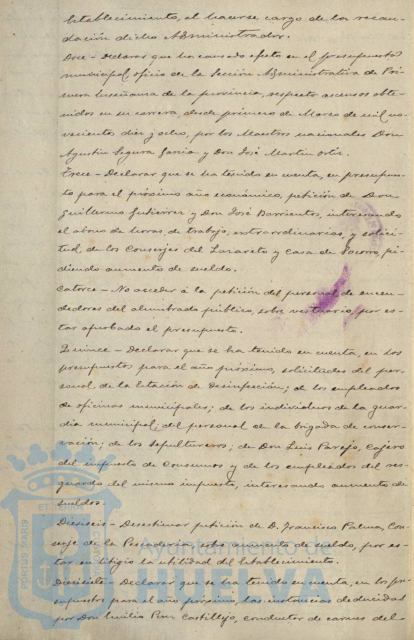 Establecimiento, al hacerse cargo de la recau-
dación dicho Administrador.
Doce - Declarar que ha causado efecto en el presupuesto
municipal, oficio de la Sección Administrativa de Pri-
mera Enseñanza de la provincia, respecto ascensos obte-
nidos en su carrera, desde primero de Marzo de mil no-
vecientos diez y ocho, por los Maestros nacionales Don
Agustín Segura García y Don José Martín Ortiz.
Trece - Declarar que se ha tenido en cuenta, en presupues-
to para el próximo año económico, petición de Don
Guillermo Gutiérrez y Don José Barrientos, interesando
el abono de horas de trabajo, extraordinarias, y solici-
tud, de los Conserjes del Lazareto y Casa de Socorro, pi-
diendo aumento de sueldo.
Catorce - No acceder á la petición del personal de encen-
dedores del alumbrado público, sobre vestuario, por es-
tar aprobado el presupuesto.
Quince - Declarar que se ha tenido en cuenta, en los
presupuestos para el año próximo, solicitudes del per-
sonal de la Estación de Desinfección; de los empleados
de oficinas municipales; de los individuos de la guar-
dia municipal, del personal de la brigada de conser-
vación; de los Sepultureros; de Don Luis Parejo, Cajero
del impuesto de Consumos y de los empleados del res-
guardo del mismo impuesto, interesando aumento de
sueldos.
Dieciseis - Desestimar petición de D. Francisco Palma, Con-
serje de la Pescadería, sobre aumento de sueldo, por es-
tar en litigio la utilidad del Establecimiento.
Diecisiete - Declarar que se ha tenido en cuenta, en los pre-
supuestos para el año próximo, las instancias deducidas
por Don Emilio Castillejo, conductor de carnes del
Ayuntamiento de
HUELVA
PORTUS MARIS